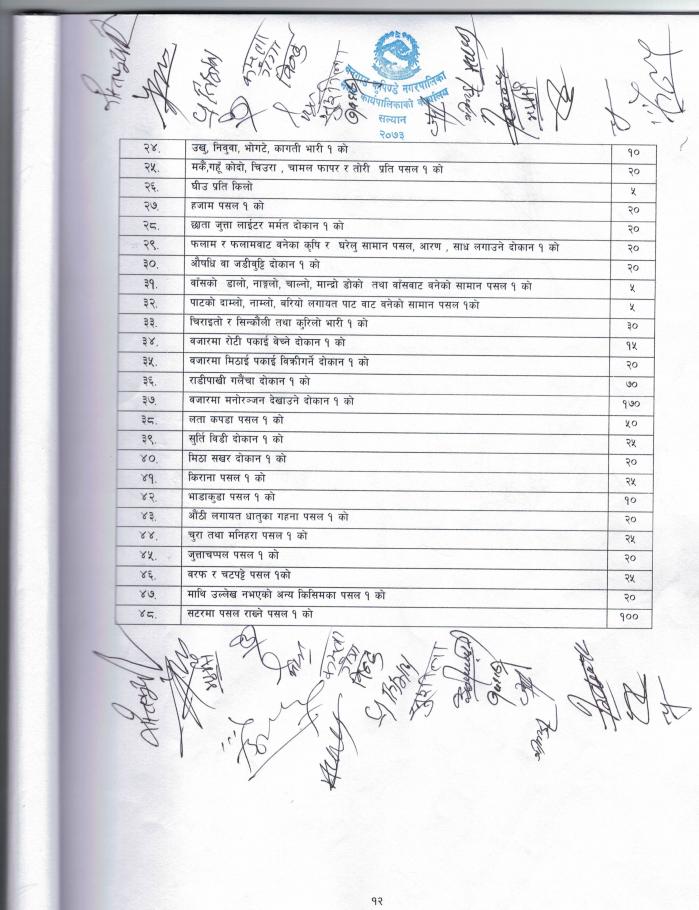 बनगाड कुपिण्डे नगरपालिका
नगर कार्यपालिकाको कार्यालय
सल्यान
२०७३
२४. उखु, निवुवा, भोगटे, कागती भारी १ को १०
२५. मकै,गहूँ कोदो, चिउरा , चामल फापर र तोरी प्रति पसल १ को २०
२६. घीउ प्रति किलो ५
२७. हजाम पसल १ को २०
२८. छाता जुत्ता लाईटर मर्मत दोकान १ को २०
२९. फलाम र फलामवाट बनेका कृषि र घरेलु सामान पसल, आरण , साध लगाउने दोकान १ को २०
३०. औषधि वा जडीवुट्टि दोकान १ को २०
३१. वाँसको डालो, नाङ्गलो, चाल्नो, मान्द्रो डोको तथा वाँसवाट बनेको सामान पसल १ को ५
३२. पाटको दाम्लो, नाम्लो, बरियो लगायत पाट वाट बनेको सामान पसल १को ५
३३. चिराइतो र सिन्कौली तथा कुरिलो भारी १ को ३०
३४. वजारमा रोटी पकाई वेच्ने दोकान १ को १५
३५. वजारमा मिठाई पकाई विक्रीगर्ने दोकान १ को २०
३६. राडीपाखी गलैंचा दोकान १ को ७०
३७. वजारमा मनोरञ्जन देखाउने दोकान १ को १७०
३८. लता कपडा पसल १ को ५०
३९. सुर्ति विडी दोकान १ को २५
४०. मिठा सखर दोकान १ को २०
४१. किराना पसल १ को २५
४२. भाडाकुडा पसल १ को १०
४३. औंठी लगायत धातुका गहना पसल १ को २०
४४. चुरा तथा मनिहरा पसल १ को २५
४५. जुत्ताचप्पल पसल १ को २०
४६. वरफ र चटपट्टे पसल १को २५
४७. माथि उल्लेख नभएको अन्य किसिमका पसल १ को २०
४८. सटरमा पसल राख्ने पसल १ को १००
१२